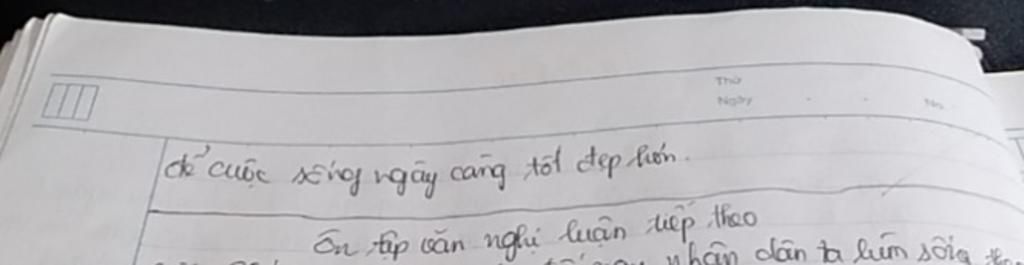 Thứ
Ngày . . No.
để cuộc sống ngày càng tốt đẹp hơn.
Ôn tập văn nghị luận tiếp theo
nhân dân ta